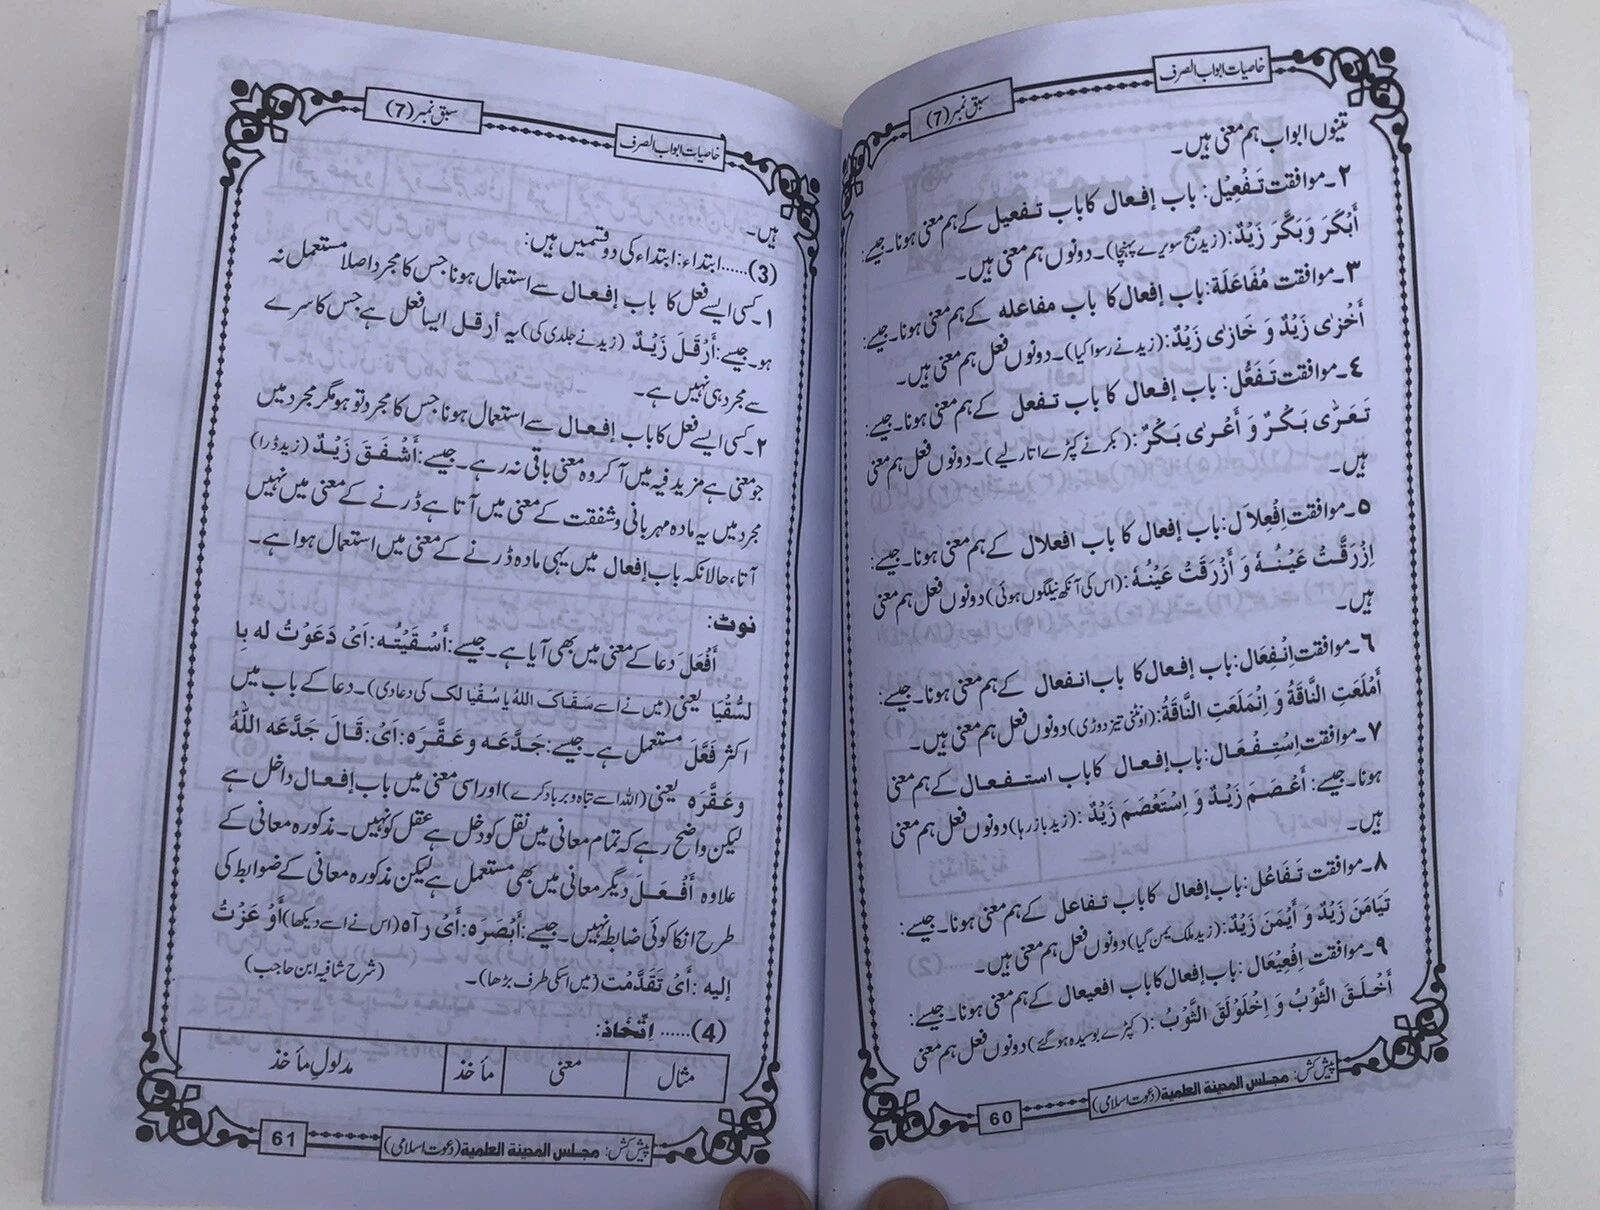 خاصیات ابواب الصرف
سبق نمبر (7)
تینوں ابواب ہم معنی ہیں۔
۲۔موافقت تَفْعِیْل: باب إفعال کا باب تفعیل کے ہم معنی ہونا۔ جیسے:
أَبْکَرَ وَبَکَّرَ زَیْدٌ: (زید صبح سویرے پہنچا)۔ دونوں ہم معنی ہیں۔
۳۔موافقت مُفَاعَلَة: باب إفعال کا باب مفاعله کے ہم معنی ہونا۔ جیسے:
أَخْزٰی زَیْدٌ وَ خَازٰی زَیْدٌ: (زید نے رسوا کیا)۔ دونوں فعل ہم معنی ہیں۔
٤۔موافقت تَفَعُّل: باب إفعال کا باب تفعل کے ہم معنی ہونا۔ جیسے:
تَعَرّٰی بَکْرٌ وَ أَعْرٰی بَکْرٌ: (بکر نے کپڑے اتار لیے)۔ دونوں فعل ہم معنی
ہیں۔
۵۔موافقت اِفْعِلاَل: باب إفعال کا باب افعلال کے ہم معنی ہونا۔ جیسے:
اِزْرَقَّتْ عَیْنُهٗ وَ أَزْرَقَتْ عَیْنُهٗ: (اس کی آنکھ نیلگوں ہوئی) دونوں فعل ہم معنی
ہیں۔
۶۔موافقت اِنْفِعَال: باب إفعال کا باب انفعال کے ہم معنی ہونا۔ جیسے:
أَمْلَعَتِ النَّاقَةُ وَ اِنْمَلَعَتِ النَّاقَةُ: (اونٹنی تیز دوڑی) دونوں فعل ہم معنی ہیں۔
۷۔موافقت اِسْتِفْعَال: باب إفعال کا باب استفعال کے ہم معنی
ہونا۔ جیسے: أَعْصَمَ زَیْدٌ وَ اِسْتَعْصَمَ زَیْدٌ: (زید باز رہا) دونوں فعل ہم معنی
ہیں۔
۸۔موافقت تَفَاعُل: باب إفعال کا باب تفاعل کے ہم معنی ہونا۔ جیسے:
تَیَامَنَ زَیْدٌ وَ أَیْمَنَ زَیْدٌ: (زید ملک یمن گیا) دونوں فعل ہم معنی ہیں۔
۹۔موافقت اِفْعِیْعَال: باب إفعال کا باب افعیعال کے ہم معنی ہونا۔ جیسے:
أَخْلَقَ الثَّوْبُ وَ اِخْلَوْلَقَ الثَّوْبُ: (کپڑے بوسیدہ ہو گئے) دونوں فعل ہم معنی
پیش کش: مجلس المدینة العلمیة (دعوت اسلامی)
60
خاصیات ابواب الصرف
سبق نمبر (7)
ہیں۔
(3)......ابتداء: ابتداء کی دو قسمیں ہیں:
۱۔کسی ایسے فعل کا باب إفعال سے استعمال ہونا جس کا مجرد اصلا مستعمل نہ
ہو۔ جیسے: أَرْقَلَ زَیْدٌ (زید نے جلدی کی) یہ أرقل ایسا فعل ہے جس کا سرے
سے مجرد ہی نہیں ہے۔
۲۔کسی ایسے فعل کا باب إفعال سے استعمال ہونا جس کا مجرد تو ہو مگر مجرد میں
جو معنی ہے مزید فیہ میں آ کر وہ معنی باقی نہ رہے۔ جیسے: أَشْفَقَ زَیْدٌ (زید ڈرا)
مجرد میں یہ مادہ مہربانی و شفقت کے معنی میں آتا ہے ڈرنے کے معنی میں نہیں
آتا، حالانکہ باب إفعال میں یہی مادہ ڈرنے کے معنی میں استعمال ہوا ہے۔
نوٹ:
أَفْعَلَ دعا کے معنی میں بھی آیا ہے۔ جیسے: أَسْقَیْتُه: اَیْ دَعَوْتُ له بِا
لسُّقْیَا یعنی (میں نے اسے سَقَاکَ اللهُ یا سُقْیا لک کی دعا دی)۔ دعا کے باب میں
اکثر فَعَّلَ مستعمل ہے۔ جیسے: جَدَّعَه و عَقَّرَه: اَیْ: قَالَ جَدَّعَه اللّٰهُ
و عَقَّرَه یعنی (اللہ اسے تباہ و برباد کرے) اور اسی معنی میں باب إفعال داخل ہے
لیکن واضح رہے کہ تمام معانی میں نقل کو دخل ہے عقل کو نہیں۔ مذکورہ معانی کے
علاوہ أَفْعَلَ دیگر معانی میں بھی مستعمل ہے لیکن مذکورہ معانی کے ضوابط کی
طرح انکا کوئی ضابطہ نہیں۔ جیسے: أَبْصَرَه: أَیْ رآه (اس نے اسے دیکھا) أَوْ عَزْتُ
إلیه: أَیْ تَقَدَّمْت (میں اسکی طرف بڑھا)۔ (شرح شافیہ ابن حاجب)
(4)...... اِتِّخَاذ:
مثال معنی مأخذ مدلولِ مأخذ
پیش کش: مجلس المدینة العلمیة (دعوت اسلامی)
61